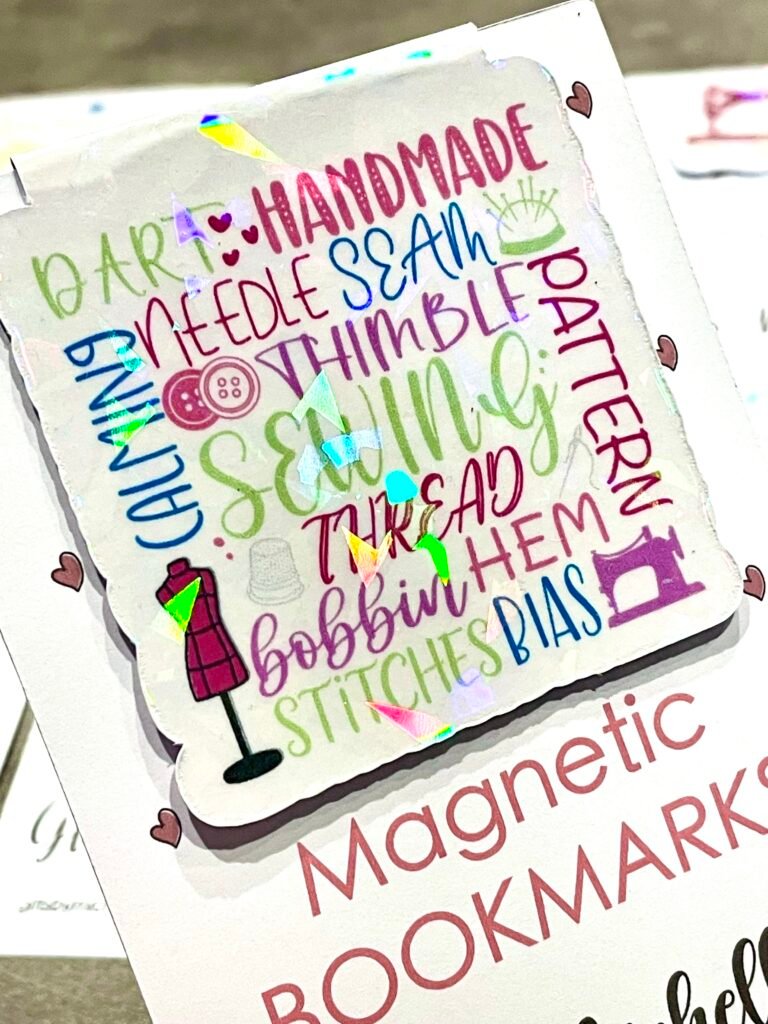 HANDMADE
DART
NEEDLE SEAM
CALMING
THIMBLE
PATTERN
SEWING
THREAD
HEM
bobbin
BIAS
STITCHES
Magnetic
BOOKMARKS